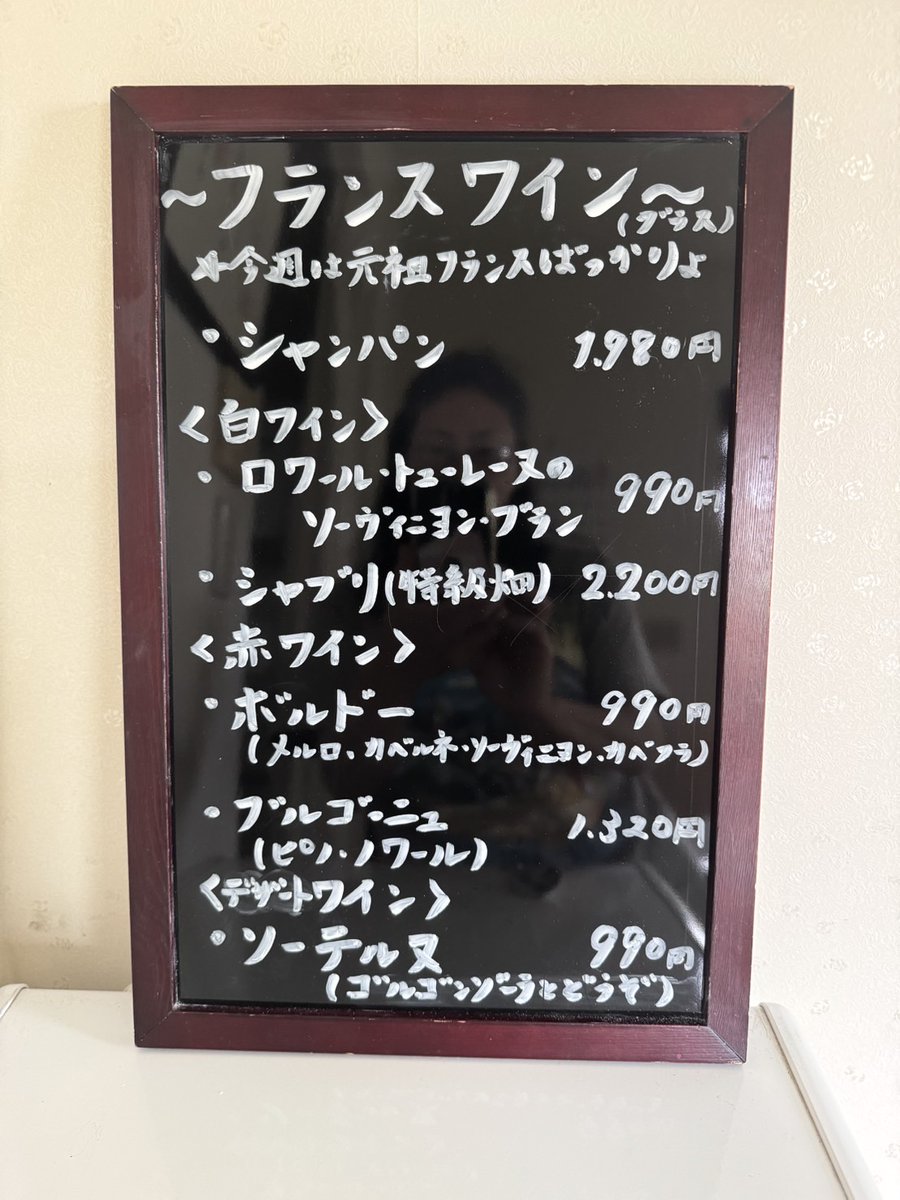 ~フランスワイン~
(グラス)
☆今週は元祖フランスばっかりよ
・シャンパン 1.980円
<白ワイン>
・ロワール・トゥーレーヌの
ソーヴィニヨン・ブラン 990円
・シャブリ(特級畑) 2.200円
<赤ワイン>
・ボルドー 990円
(メルロ、カベルネ・ソーヴィニヨン、カベフラ)
・ブルゴーニュ 1.320円
(ピノ・ノワール)
<デザートワイン>
・ソーテルヌ 990円
(ゴルゴンゾーラとどうぞ)